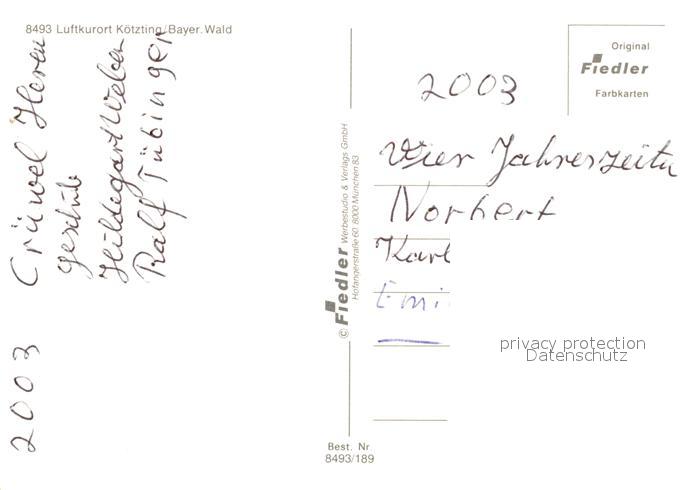 8493 Luftkurort Kötzting/Bayer. Wald
2003 Crüwel Heren
geschule
Hildegart Weber
Ralf Tübinger
© Fiedler Werbestudio & Verlags GmbH
Hofangerstraße 60 8000 München 83
Original
Fiedler
Farbkarten
2003
Vier Jahreszeitn
Norbert
Karl
Emi
privacy protection
Datenschutz
Best. Nr.
8493/189